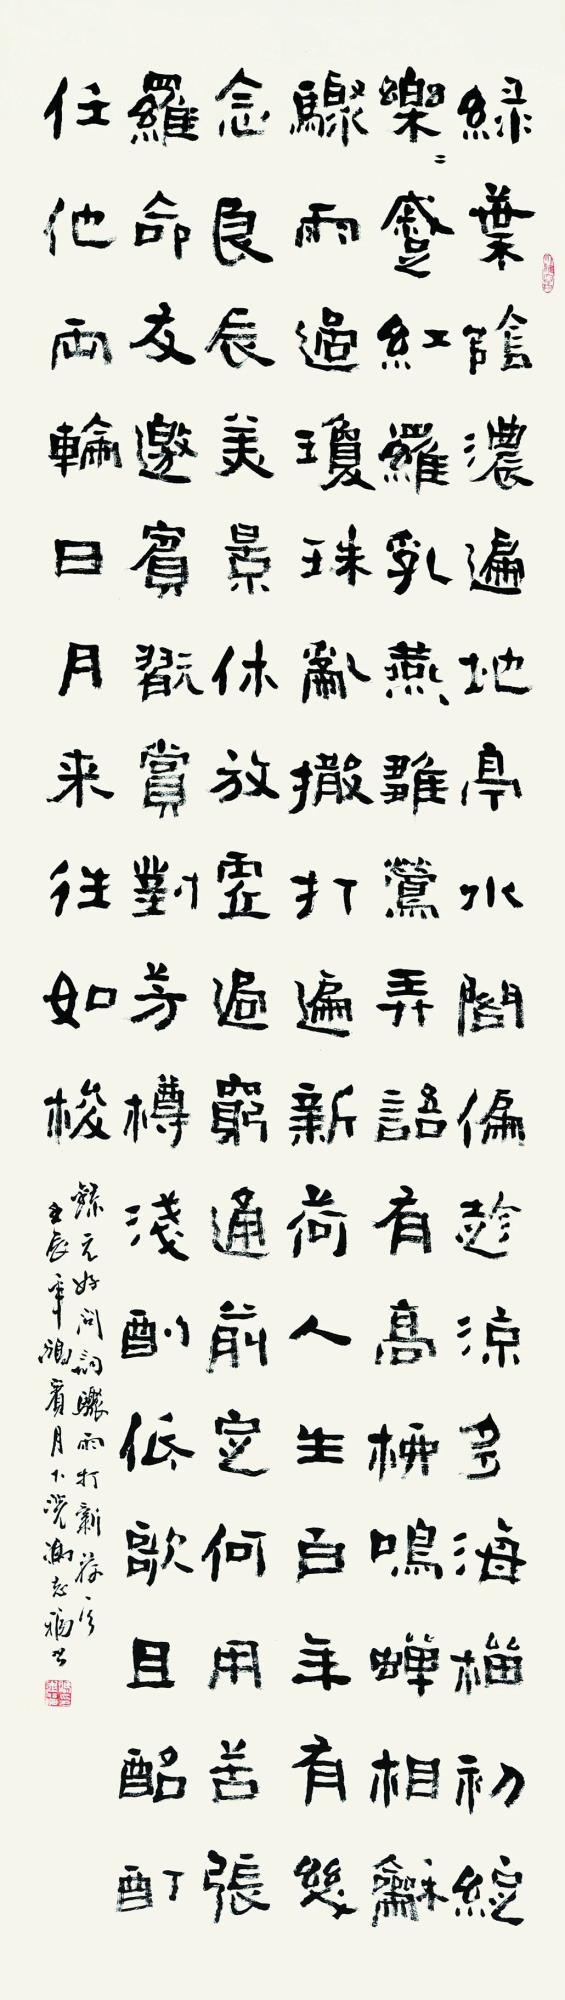 綠葉陰濃遍地亭水閣偏趁涼多海榴初綻
樂〻蹙紅羅乳燕雛鶯弄語有高柳鳴蟬相龢
驟雨過瓊珠亂撒打遍新荷人生百年有幾
念良辰美景休放虛過窮通前定何用苦張
羅命友邀賓翫賞對芳樽淺酌低歌且酩酊
任他兩輪日月来往如梭
錄元好问詞驟雨打新荷
壬辰年